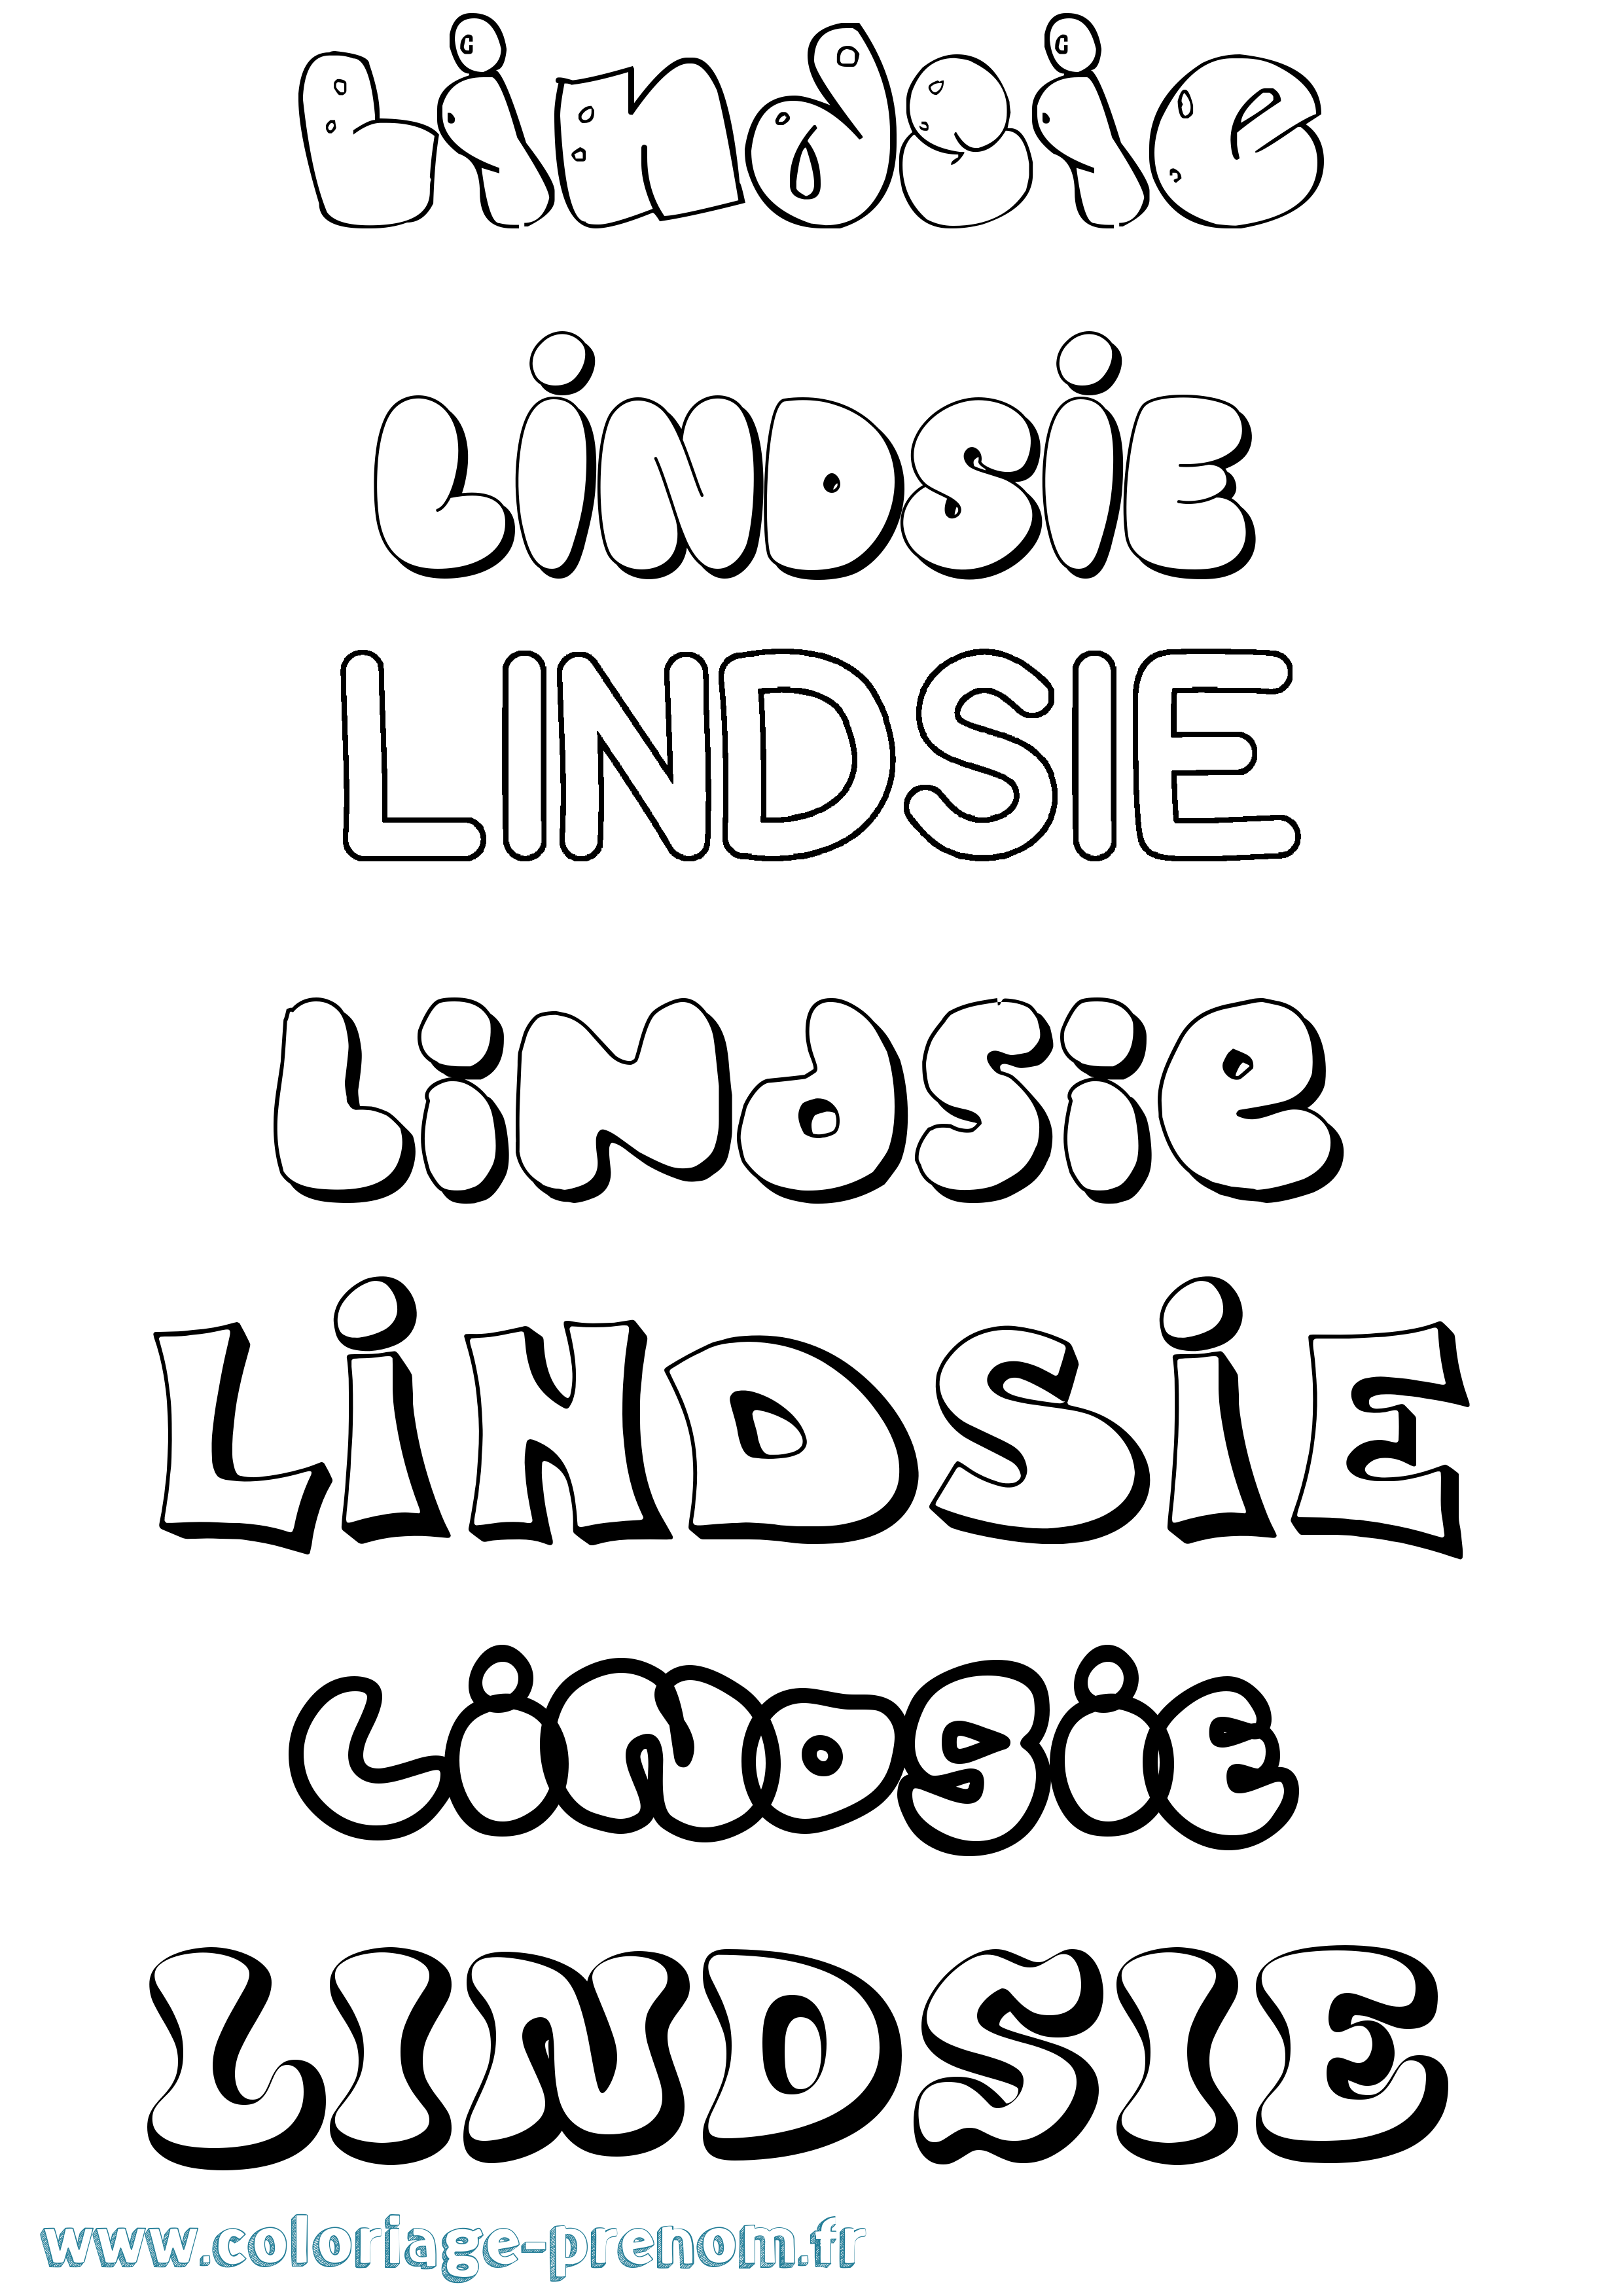 Lindsie
LiNDSiE
LINDSIE
Lindsie
LiNDSiE
LiNDSiE
LINDSIE
www.coloriage-prenom.fr